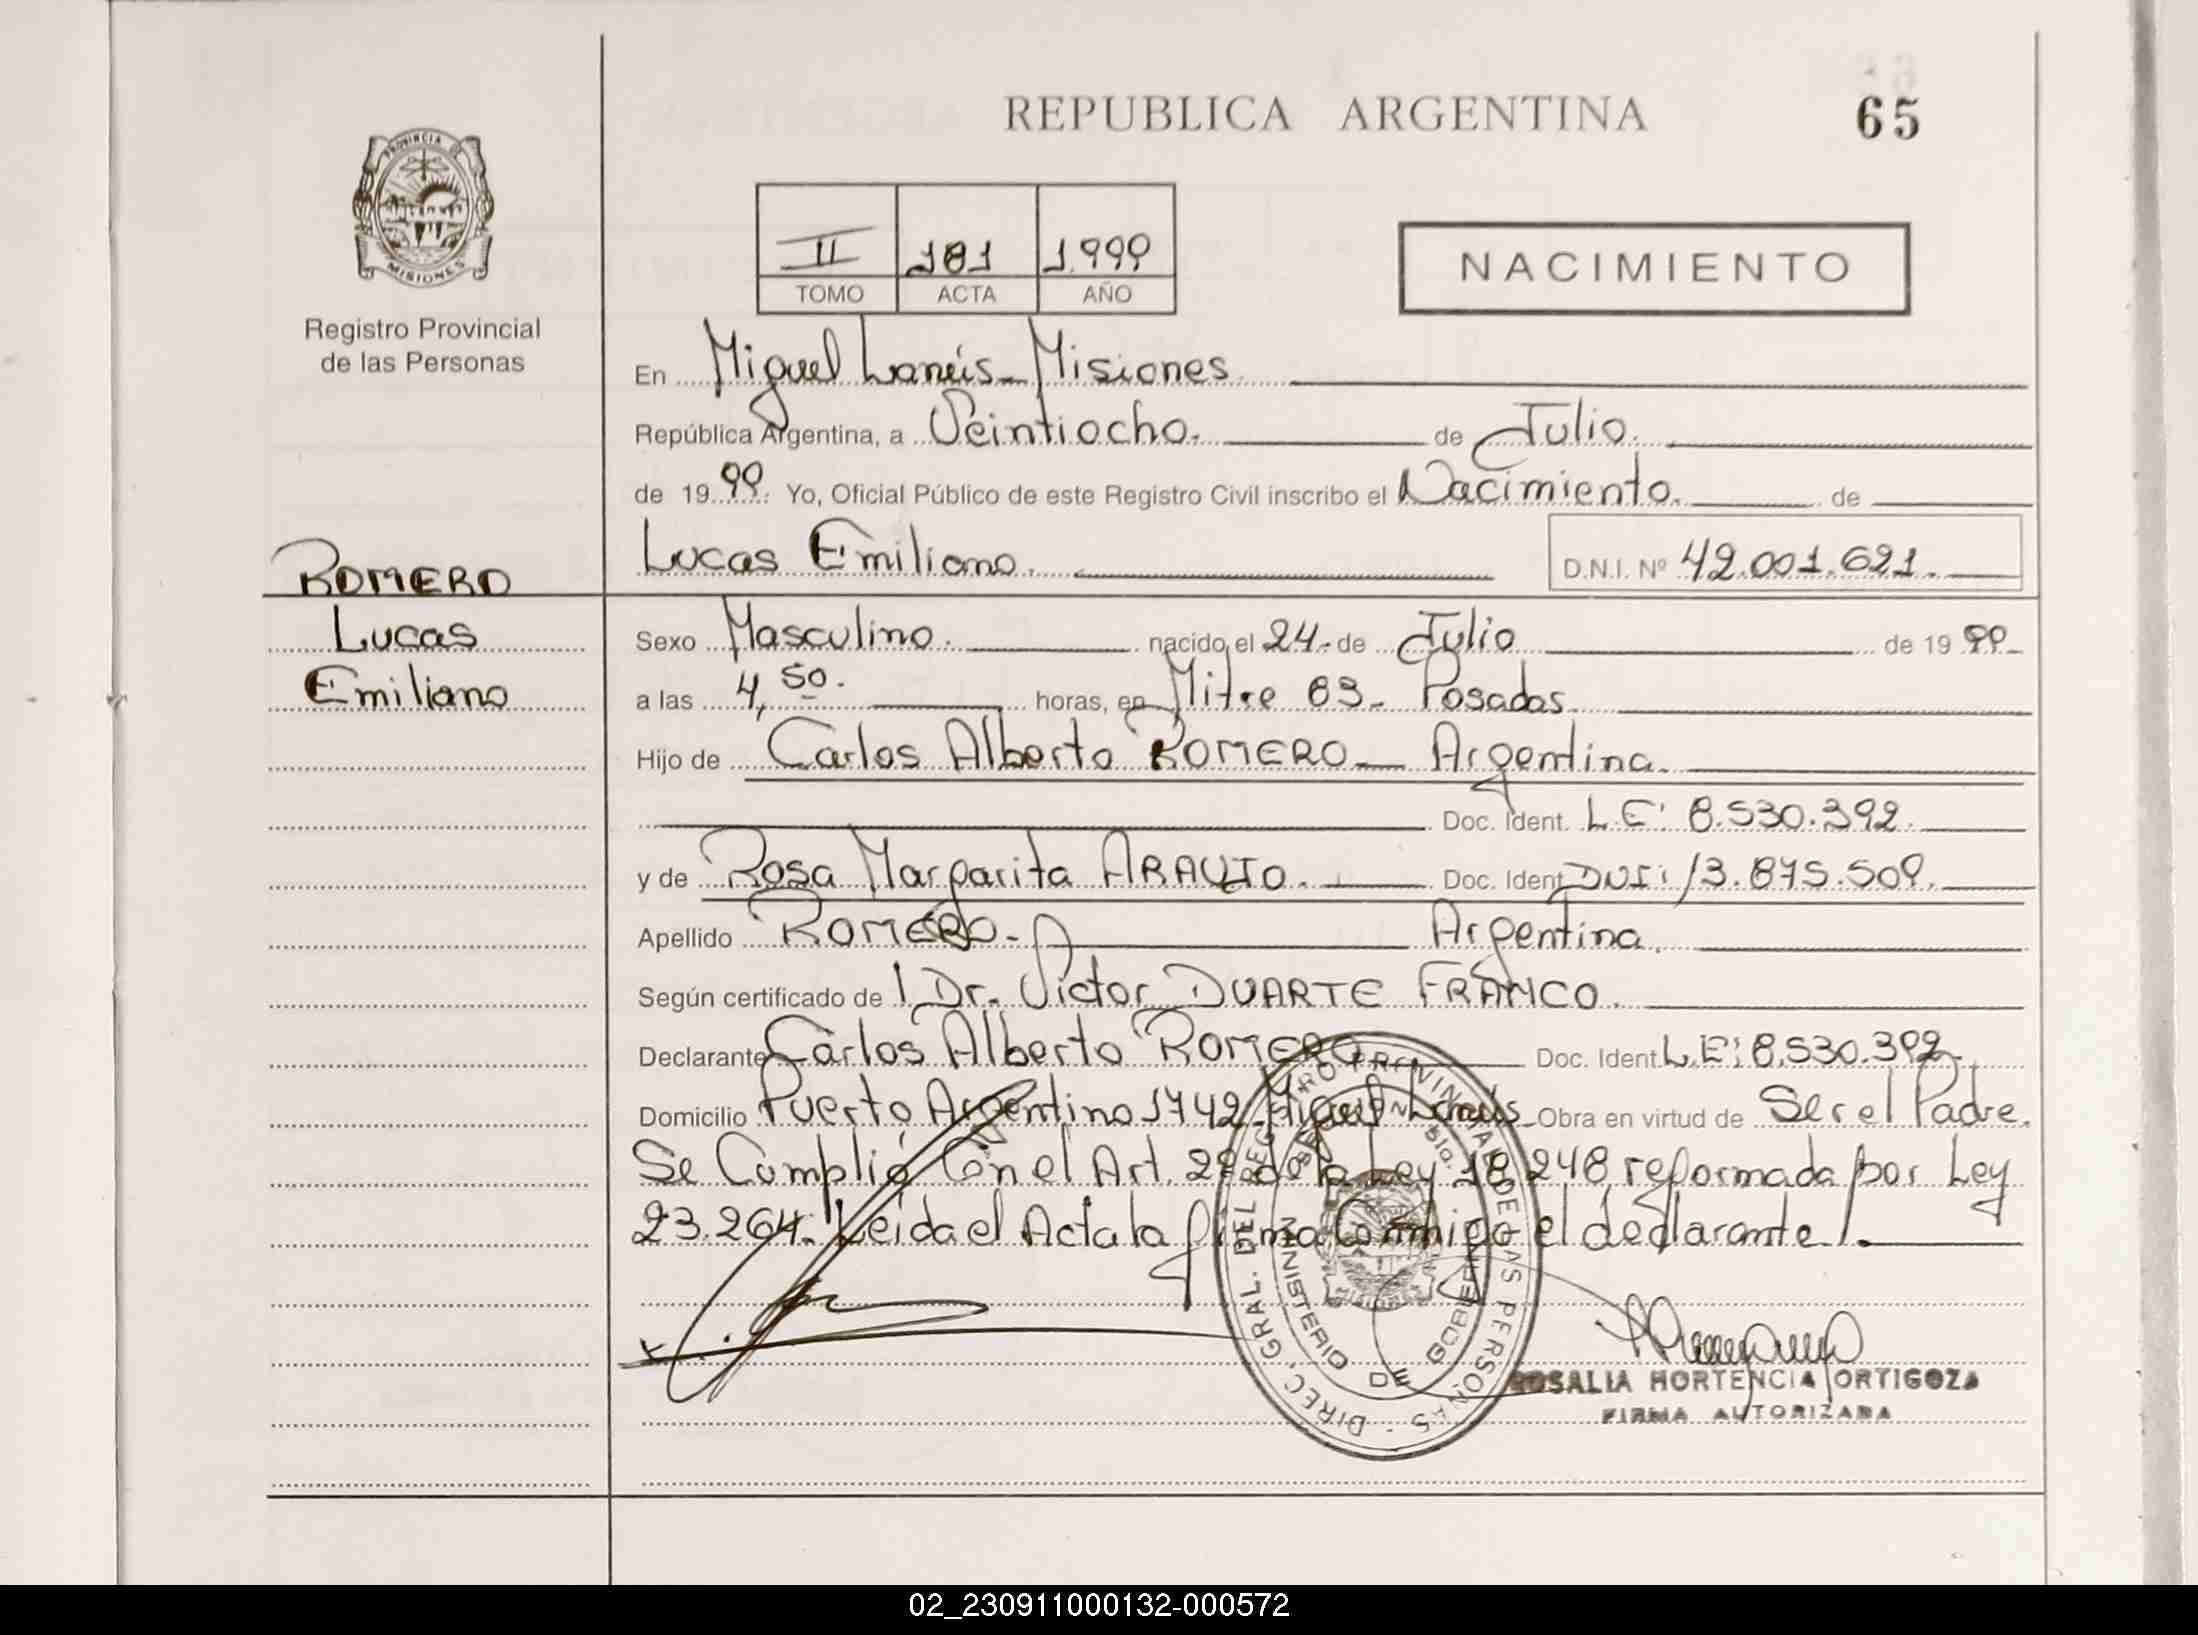 REPUBLICA ARGENTINA
65
PROVINCIA DE MISIONES
Registro Provincial
de las Personas
II 181 1.999
TOMO ACTA AÑO
NACIMIENTO
En Miguel Lanús - Misiones
República Argentina, a Veintiocho. de Julio.
de 19 99. Yo, Oficial Público de este Registro Civil inscribo el Nacimiento. de
Lucas Emiliano. D.N.I. Nº 42.001.621.
ROMERO
Lucas
Emiliano
Sexo Masculino. nacido el 24. de Julio de 19 99
a las 4,50. horas, en Mitre 63 - Posadas.
Hijo de Carlos Alberto ROMERO - Argentina.
Doc. Ident. L.E: 8.530.392.
y de Rosa Margarita ARAUJO. Doc. Ident. DNI: 13.875.509.
Apellido ROMERO - Argentina.
Según certificado de l Dr. Victor DUARTE FRANCO.
Declarante Carlos Alberto ROMERO Doc. Ident. L.E: 8.530.392
Domicilio Puerto Argentino 1742. Miguel Lanús Obra en virtud de Ser el Padre.
Se Cumplió Con el Art. 2º de la Ley 18.248 reformada por Ley
23.264. Leida el Acta la firma Conmigo el declarante.
DIREC. GRAL. DEL REGISTRO PROVINCIAL DE LAS PERSONAS
MINISTERIO DE GOBIERNO
ROSALIA HORTENCIA ORTIGOZA
FIRMA AUTORIZADA
02_230911000132-000572